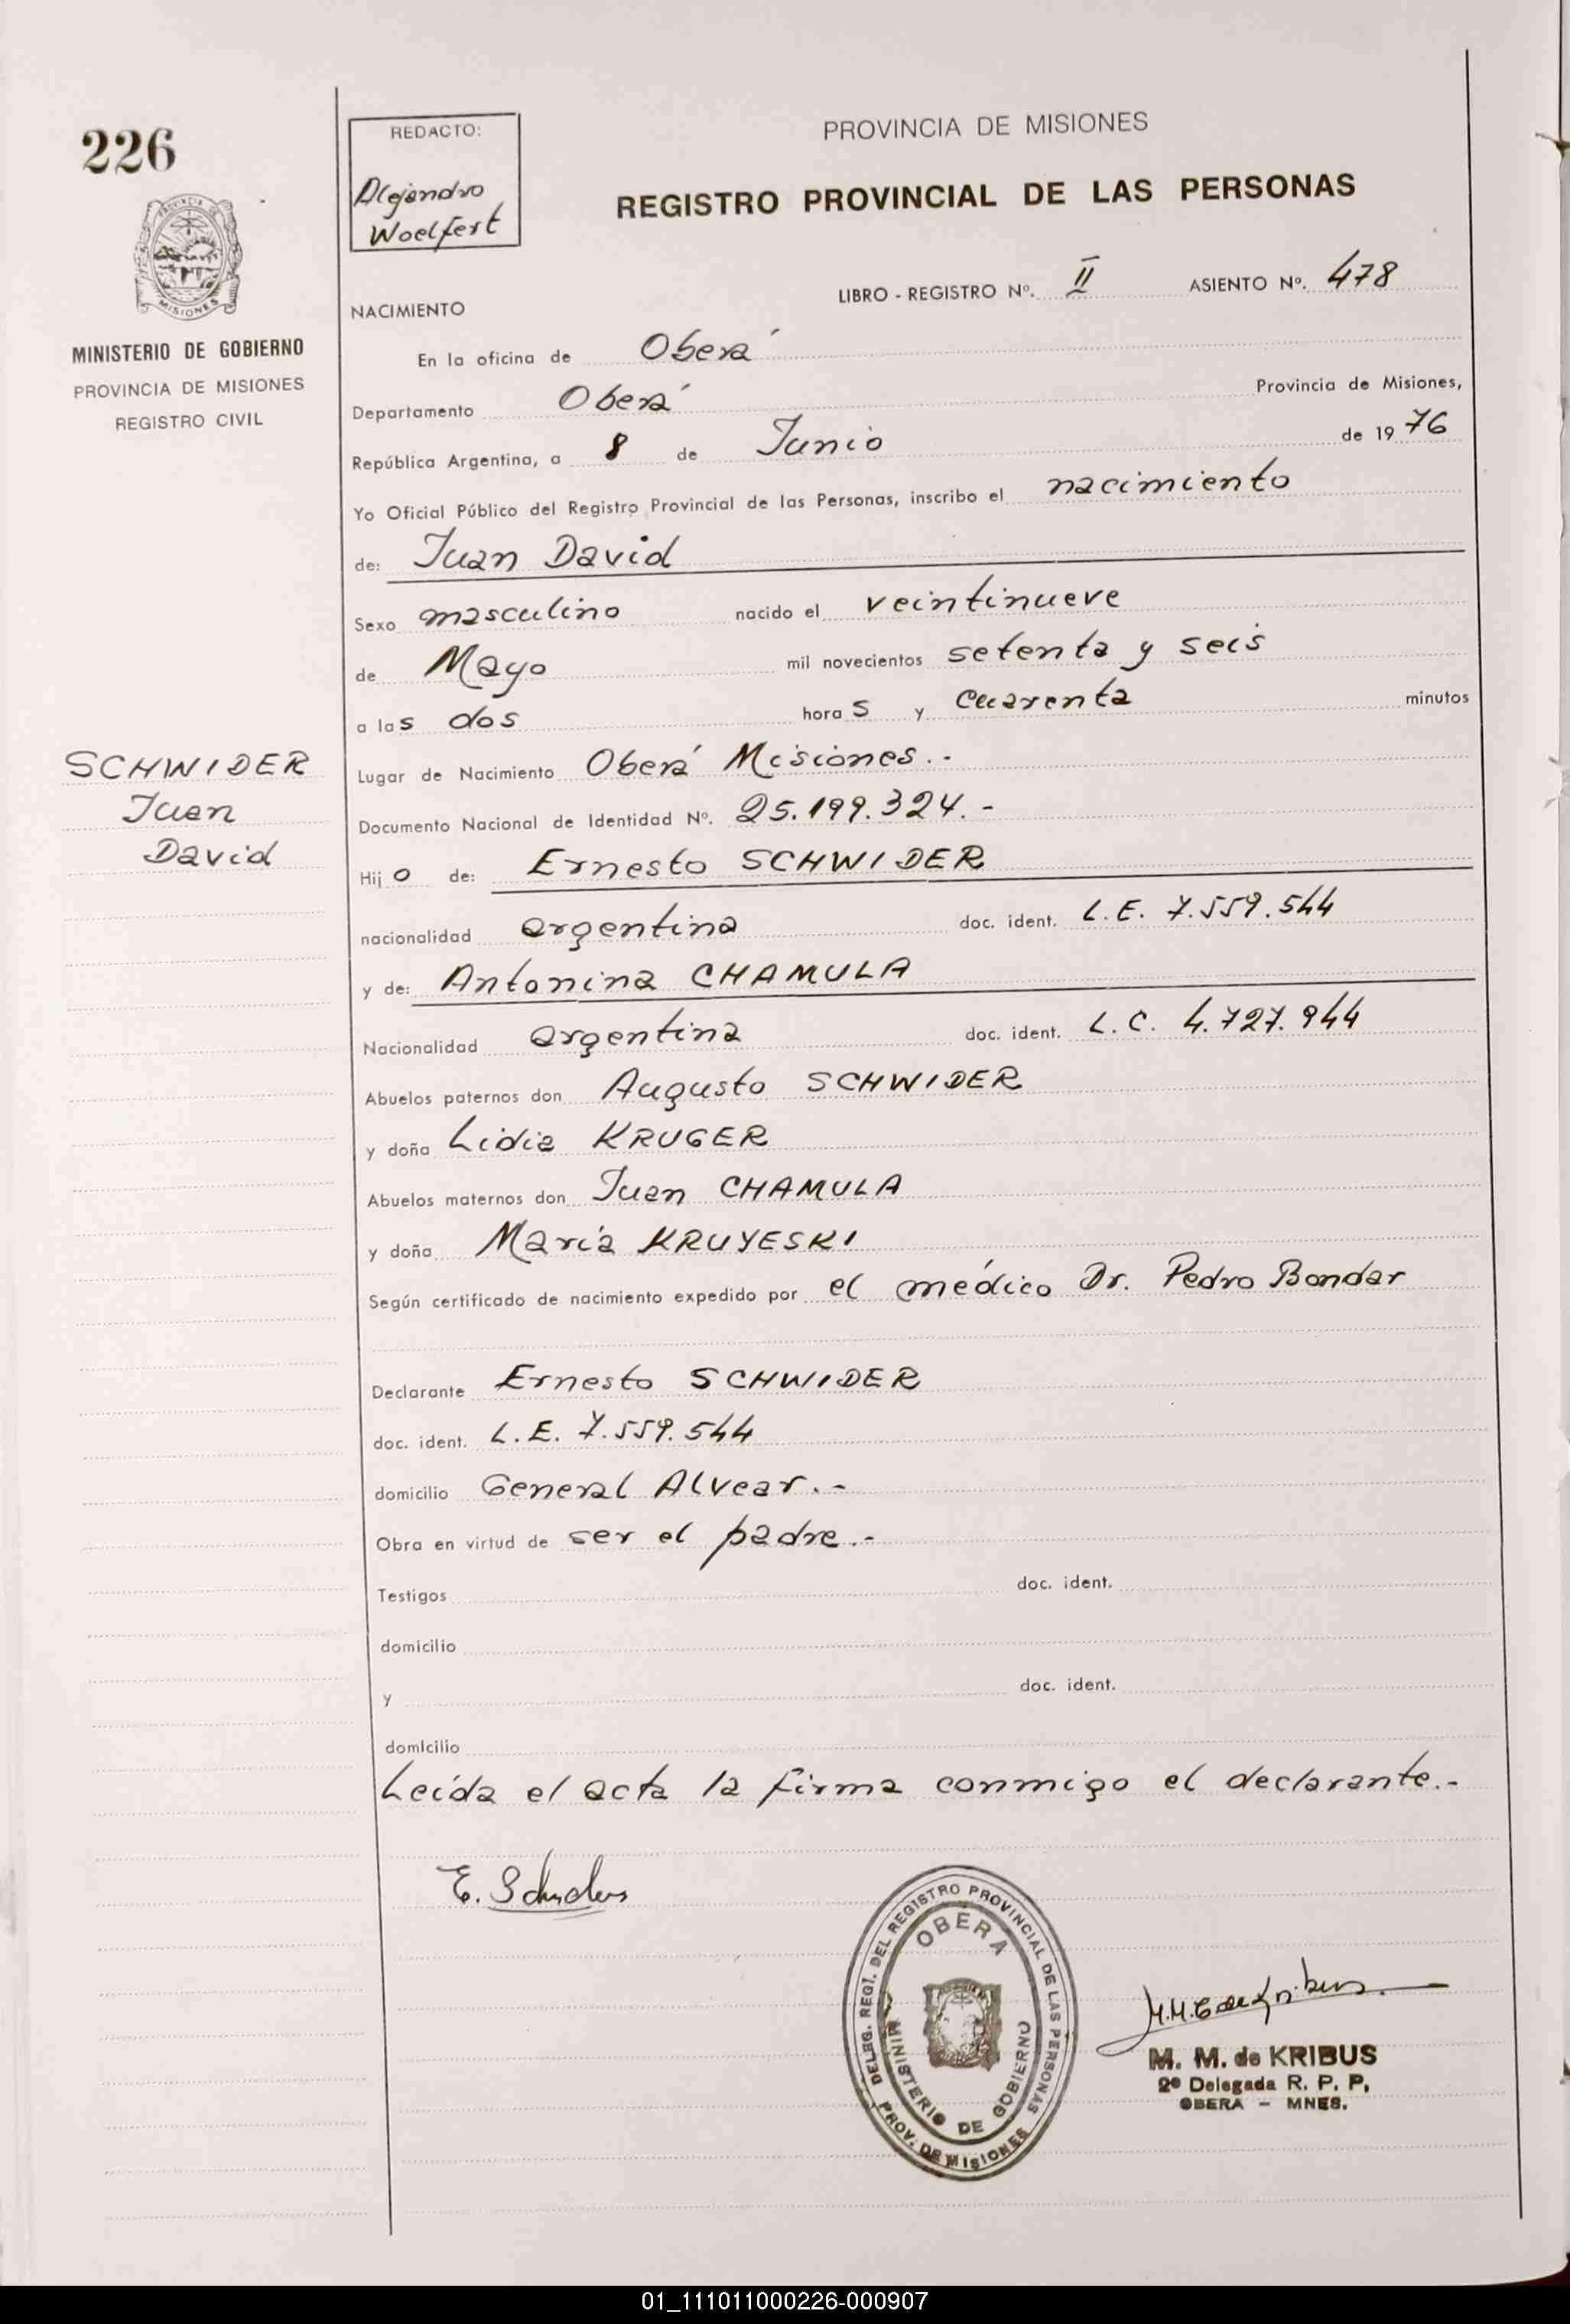 226
PROVINCIA DE MISIONES
MINISTERIO DE GOBIERNO
PROVINCIA DE MISIONES
REGISTRO CIVIL
SCHWIDER
Juan
David
REDACTO:
Alejandro
Woelfert
PROVINCIA DE MISIONES
REGISTRO PROVINCIAL DE LAS PERSONAS
LIBRO - REGISTRO Nº. II ASIENTO Nº. 478
NACIMIENTO
En la oficina de Oberá
Departamento Oberá Provincia de Misiones,
República Argentina, a 8 de Junio de 1976
Yo Oficial Público del Registro Provincial de las Personas, inscribo el nacimiento
de: Juan David
Sexo masculino nacido el veintinueve
de Mayo mil novecientos setenta y seis
a las dos horas y cuarenta minutos
Lugar de Nacimiento Oberá Misiones.-
Documento Nacional de Identidad Nº. 25.199.324.-
Hijo de: Ernesto SCHWIDER
nacionalidad argentina doc. ident. L.E. 7.559.544
y de: Antonina CHAMULA
Nacionalidad argentina doc. ident. L.C. 4.727.944
Abuelos paternos don Augusto SCHWIDER
y doña Lidia KRUGER
Abuelos maternos don Juan CHAMULA
y doña María KRUYESKI
Según certificado de nacimiento expedido por el médico Dr. Pedro Bondar
Declarante Ernesto SCHWIDER
doc. ident. L.E. 7.559.544
domicilio General Alvear.-
Obra en virtud de ser el padre.-
Testigos doc. ident.
domicilio
y doc. ident.
domicilio
Leída el acta la firma conmigo el declarante.-
E.
DELEG. REGI. DEL REGISTRO PROVINCIAL DE LAS PERSONAS
OBERA
MINISTERIO DE GOBIERNO
PROV. DE MISIONES
M. M. de KRIBUS
2º Delegada R. P. P.
OBERA - MNES.
01_111011000226-000907